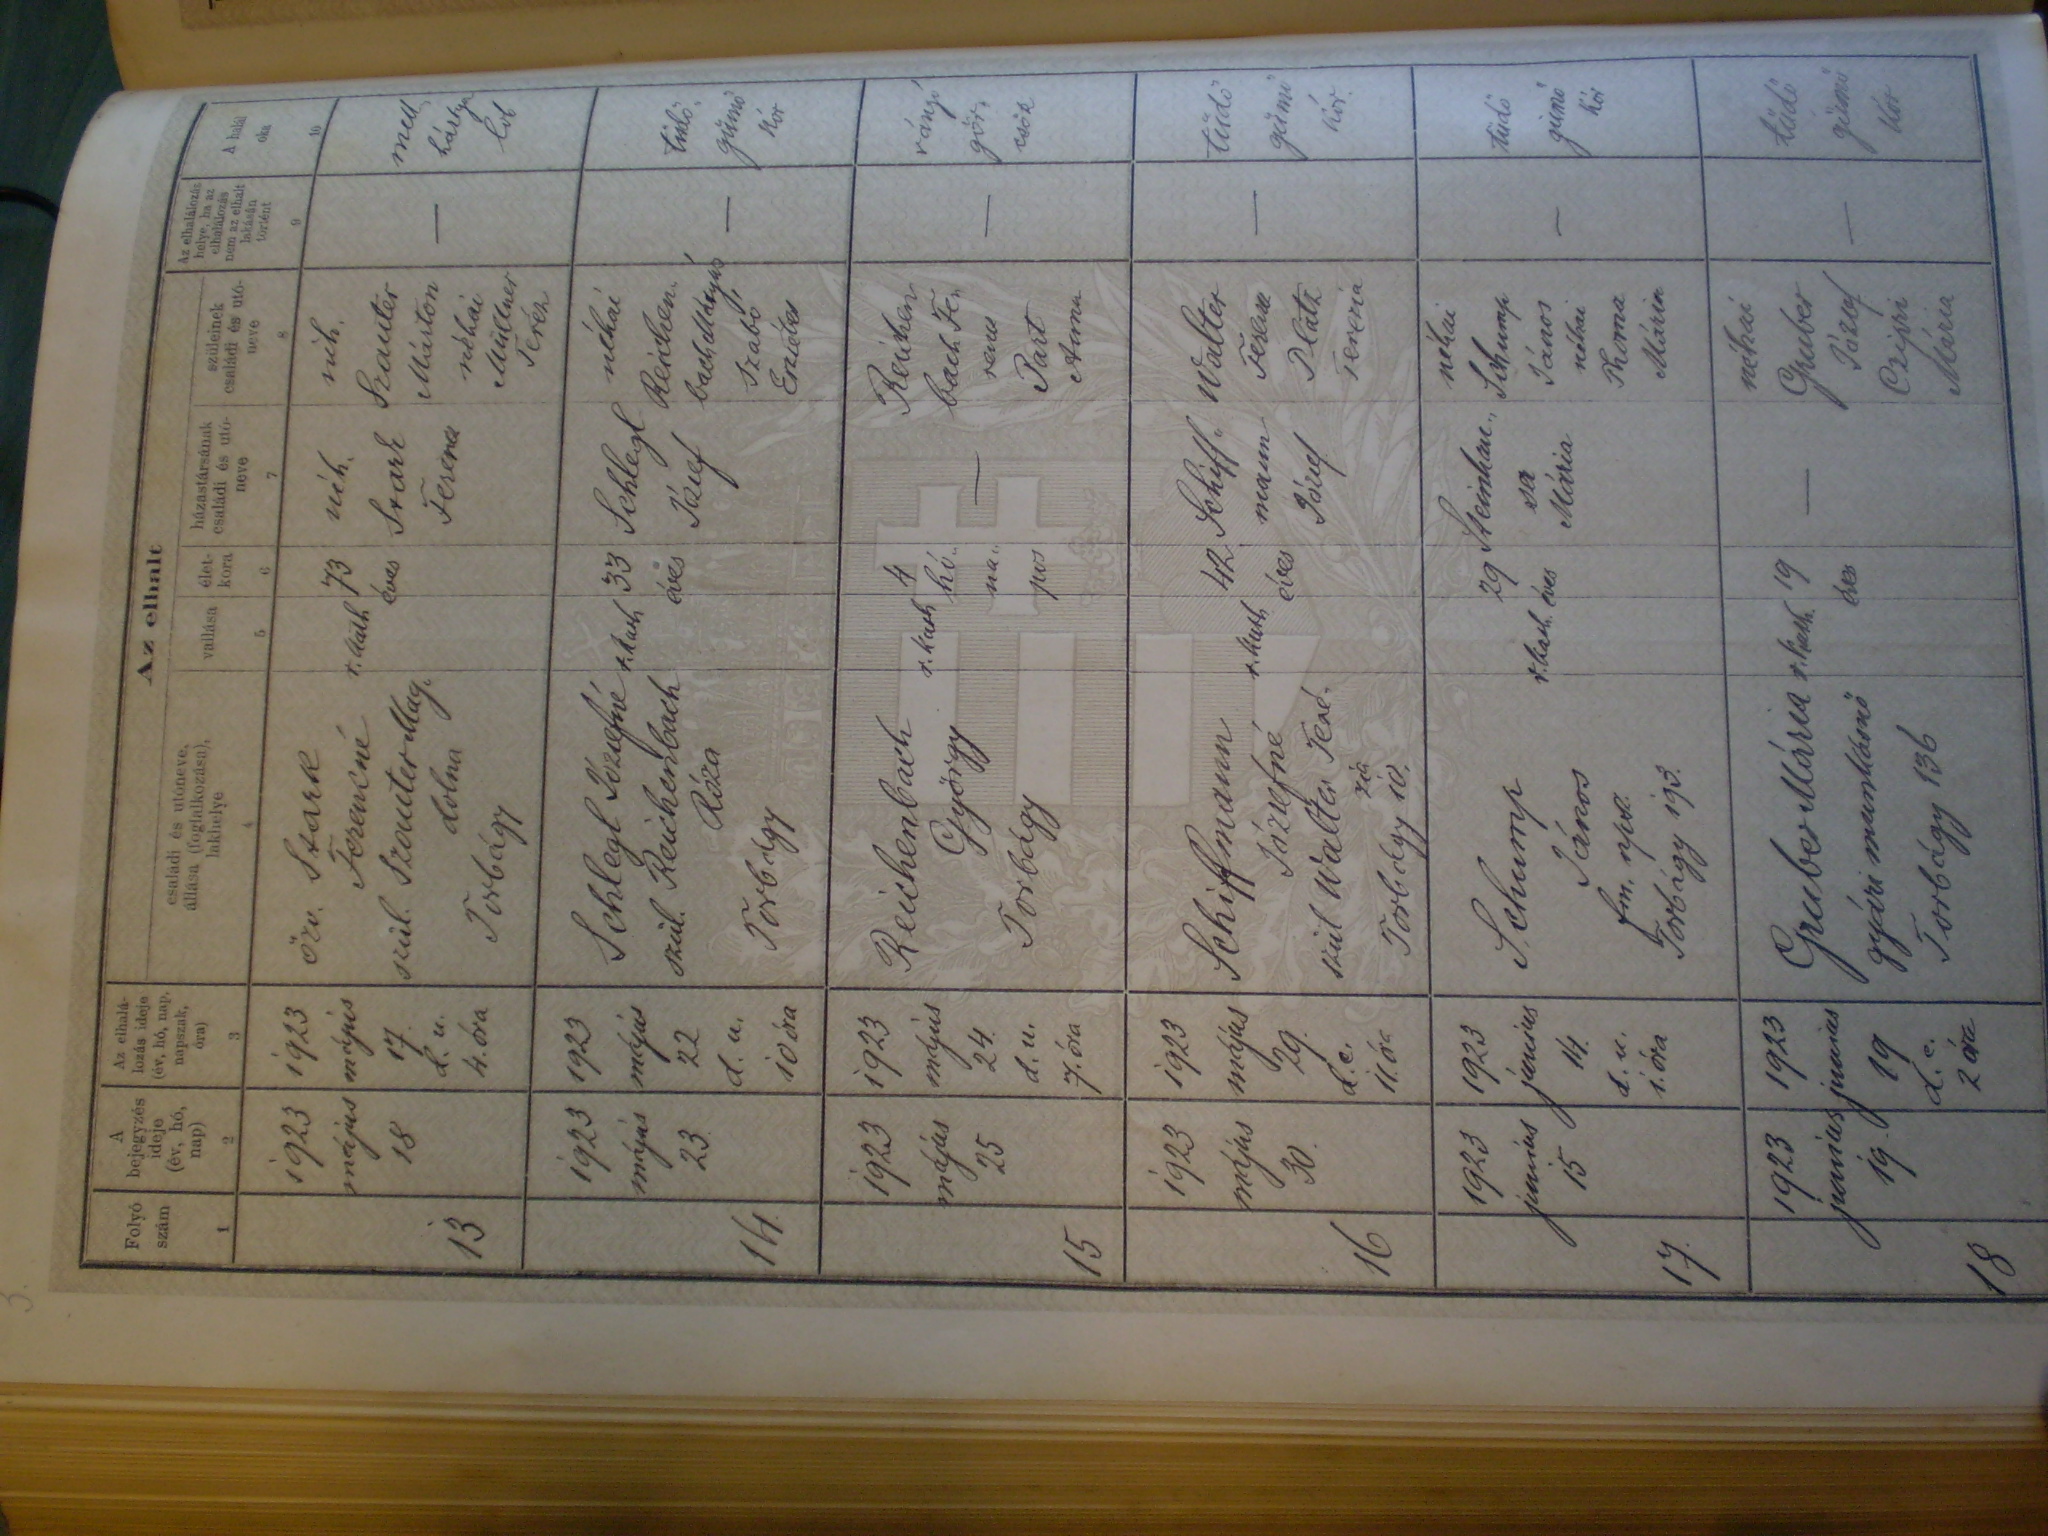 Az elhalt
Folyó
szám
A
bejegyzés
ideje
(év, hó,
nap)
Az elhalá-
lozás ideje
(év, hó, nap,
napszak,
óra)
családi és utóneve,
állása (foglalkozása),
lakhelye
vallása
élet-
kora
házastársának
családi és utó-
neve
szüleinek
családi és utó-
neve
Az elhalálozás
helye, ha az
elhalálozás
nem az elhalt
lakásán
történt
A halál
oka
1
2
3
4
5
6
7
8
9
10
13
1923
május
18
1923
május
17.
d. u.
4. óra
özv. Stark
Ferencné
szül. Szauter Mag.
dolna
Torbágy
r. kath
73
éves
néh.
Stark
Ferenc
néh.
Szauter
Márton
néhai
Müllner
Teréz
—
mell
hártya
lob
14.
1923
május
23.
1923
május
22
d. u.
10 óra
Schlegl Józsefné
szül. Reichenbach
Róza
Torbágy
r. kath
33
éves
Schlegl
József
néhai
Reichen.
bach Mátyás
Szabó
Erzsébet
—
tüdő.
gümő
kór
15
1923
május
25
1923
május
24.
d. u.
7. óra
Reichenbach
György
Torbágy
r. kath
4
hó.
na.
pos
—
Reichen
bach Fe.
renc
Part
Anna
—
ránjó
gör.
csök
16
1923
május
30.
1923
május
29.
d. e.
11. óra
Schiffmann
Józsefné
szül Walter Teré.
zia
Torbágy 10.
r. kath
42.
éves
Schiff.
mann
József
Walter
Ferenc
Platz
Terézia
—
tüdő
gümő
kór.
17.
1923
junius
15
1923
junius
14.
d. u.
1. óra
Schump
János
fm. nps.
Torbágy 193.
r. kath.
29
éves
Steinhau.
sz
Mária
néhai
Schump
János
néhai
Thoma
Mária
—
tüdő
gümő
kór
18
1923
junius
19.
1923
junius
19
d. e.
2 óra
Gruber Mária
gyári munkásnő
Torbágy 136
r. kath.
19
éves
—
néhai
Gruber
József
Czipri
Mária
—
tüdő
gümő
kór